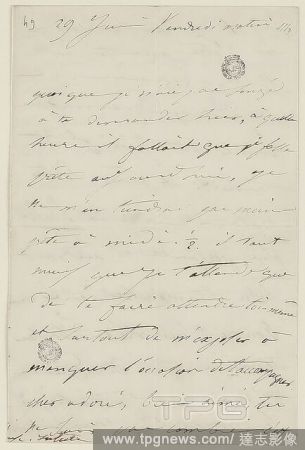 49
29 Juin Vendredi matin
quoique je n'aie pas songé
à te demander hier, à quelle
heure il fallait que je fusse
prête aujourd'hui, je
ne m'en tiendrai pas moins
prête à midi ½. il vaut
mieux que je t'attende que
de te faire attendre toi-même
et surtout de m'exposer à
manquer l'occasion de t'accompagner
cher adoré, bien aimé, tu
alamy
www.tpgnews.com / 達志影像